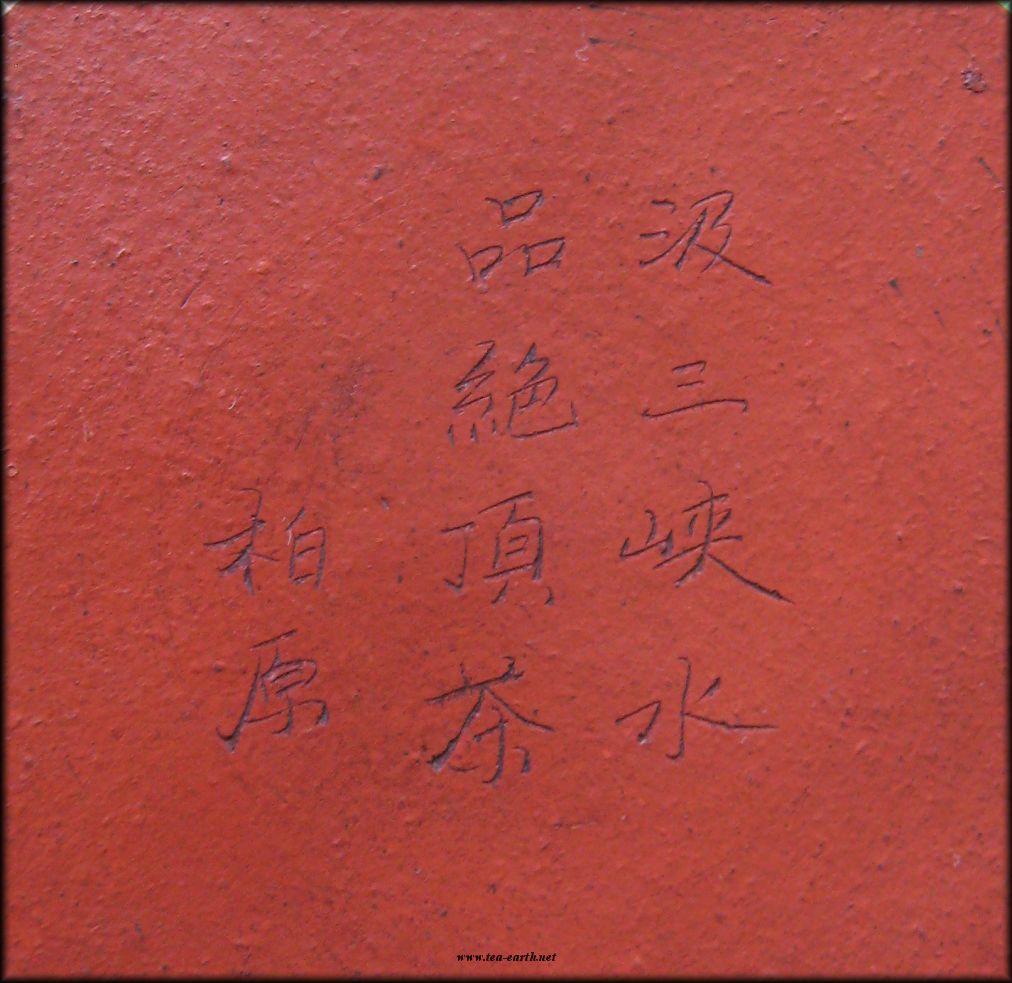 汲三峽水
品絕頂茶
柏原
www.tea-earth.net